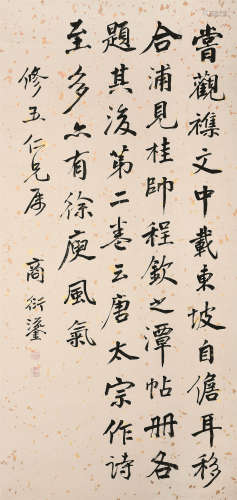 嘗觀襍文中載東坡自儋耳移
合浦見桂帥程欽之潭帖冊各
題其後第二卷云唐太宗作詩
至多亦有徐庾風氣
修五仁兄属
商衍鎏